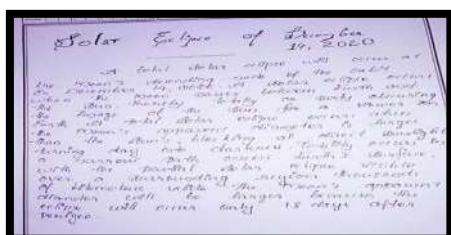 Solar Eclipse of December
14, 2020
A total solar eclipse will occur at
the Moon's descending node of the orbit
on December 14, 2020. A solar eclipse occurs
when the moon passes between Earth and
the Sun thereby totally or partly obscuring
the image of the Sun for viewer on
Earth. A total solar eclipse occurs when
the Moon's apparent diameter is larger
than the Sun's blocking all direct sunlight
turning day into darkness. Totality occurs in
a narrow path across Earth's surface,
with the partial solar eclipse visible
over surrounding region thousands
of kilometres wide. The Moon's apparent
diameter will be larger because the
eclipse will occur only 1.8 days after
perigee.